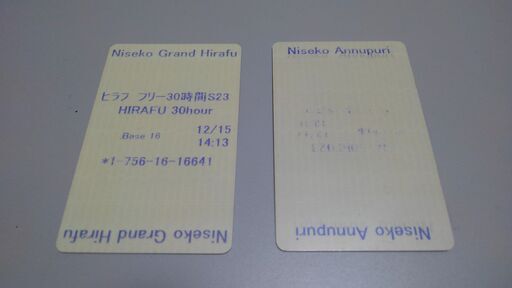 Niseko Grand Hirafu
ヒラフ フリー30時間S23
HIRAFU 30hour
Base 16 12/15
14:13
*1-756-16-16641
Niseko Grand Hirafu
Niseko Annupuri
Niseko Annupuri